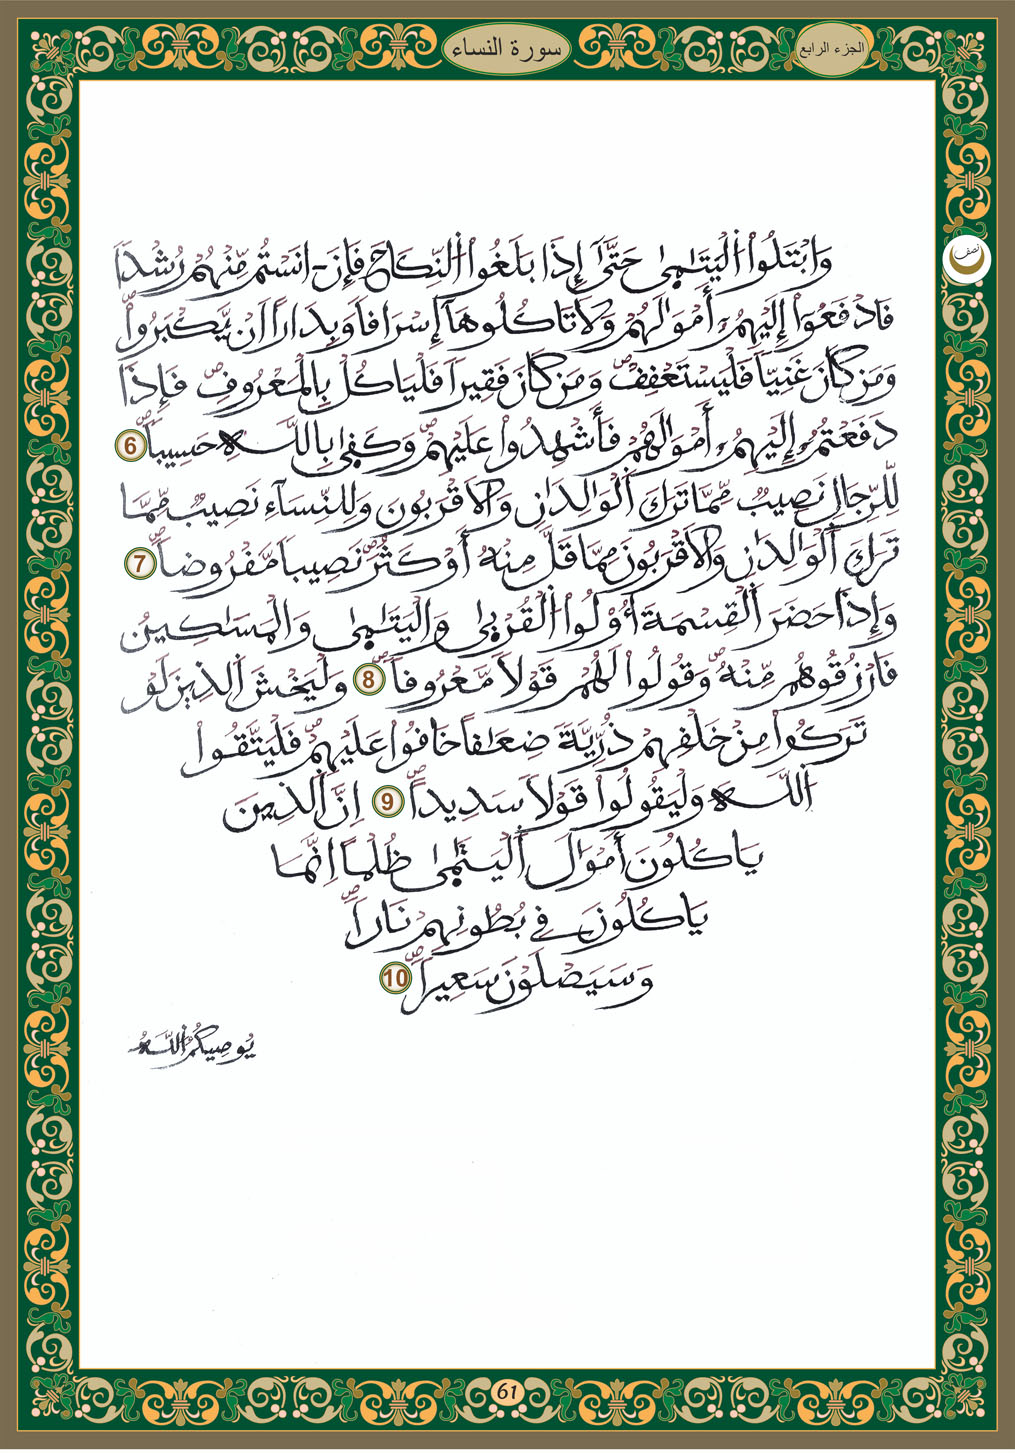 سورة النساء
الجزء الرابع
نصف
وَابْتَلُوا۟ اُ۬لْيَتَٰم۪يٰ حَتَّىٰٓ إِذَا بَلَغُوا۟ اُ۬لنِّكَاحَ فَإِنَ اٰنَسْتُم مِّنْهُمْ رُشْداٗ
فَادْفَعُوٓا۟ إِلَيْهِمُۥٓ أَمْوَٰلَهُمْ وَلَا تَاكُلُوهَآ إِسْرَافاٗ وَبِدَاراً اَنْ يَّكْبَرُوا۟ۖ
وَمَن كَانَ غَنِيّاٗ فَلْيَسْتَعْفِفْۖ وَمَن كَانَ فَقِيراٗ فَلْيَاكُلْ بِالْمَعْرُوفِۖ فَإِذَا
دَفَعْتُمُۥٓ إِلَيْهِمُۥٓ أَمْوَٰلَهُمْ فَأَشْهِدُوا۟ عَلَيْهِمْۖ وَكَف۪يٰ بِاللَّهِ حَسِيباٗۖ 6
لِّلرِّجَالِ نَصِيبٞ مِّمَّا تَرَكَ اَ۬لْوَٰلِدَٰنِ وَالَاقْرَبُونَ وَلِلنِّسَآءِ نَصِيبٞ مِّمَّا
تَرَكَ اَ۬لْوَٰلِدَٰنِ وَالَاقْرَبُونَ مِمَّا قَلَّ مِنْهُ أَوْ كَثُرَۖ نَصِيباٗ مَّفْرُوضاٗۖ 7
وَإِذَا حَضَرَ اَ۬لْقِسْمَةَ أُو۟لُوا۟ اُ۬لْقُرْب۪يٰ وَالْيَتَٰم۪يٰ وَالْمَسَٰكِينُ
فَارْزُقُوهُم مِّنْهُۖ وَقُولُوا۟ لَهُمْ قَوْلاٗ مَّعْرُوفاٗۖ 8 وَلْيَخْشَ اَ۬لذِينَ لَوْ
تَرَكُوا۟ مِنْ خَلْفِهِمْ ذُرِّيَّةٗ ضِعَٰفاً خَافُوا۟ عَلَيْهِمْۖ فَلْيَتَّقُوا۟
اُ۬للَّهَ وَلْيَقُولُوا۟ قَوْلاٗ سَدِيداًۖ 9 اِنَّ اَ۬لذِينَ
يَاكُلُونَ أَمْوَٰلَ اَ۬لْيَتَٰم۪يٰ ظُلْماً اِنَّمَا
يَاكُلُونَ فِي بُطُونِهِمْ نَاراٗۖ
وَسَيَصْلَوْنَ سَعِيراٗۖ 10
يُوصِيكُمُ اُ۬للَّهُ
61